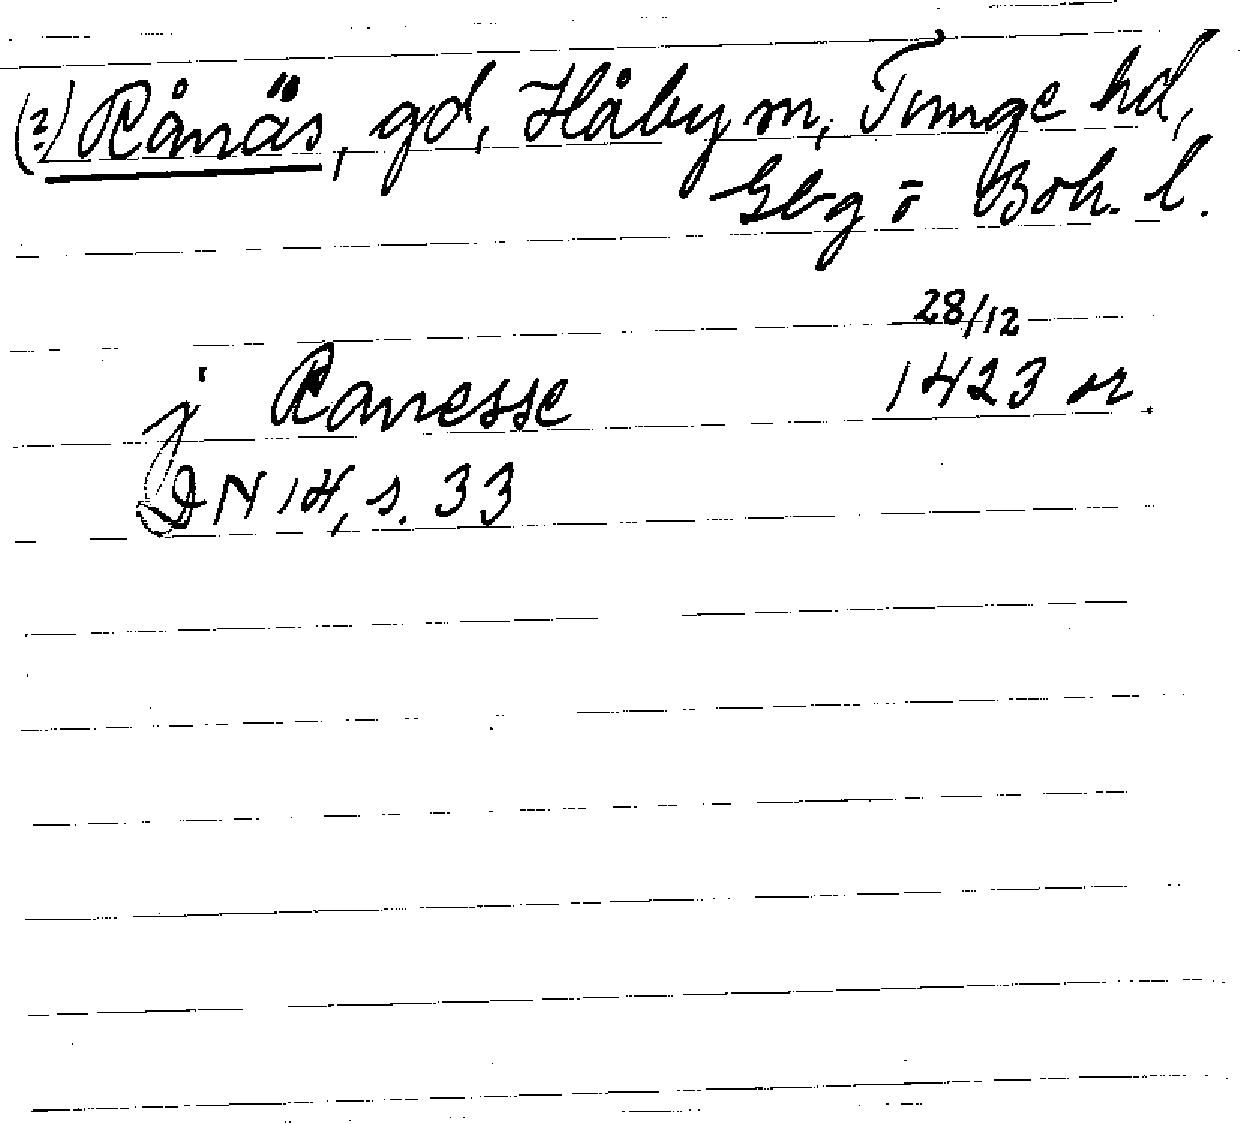 (?) Rånäs, gd, Håby sn, Tunge hd,
Gbg o Boh. l.
28/12
j Ranesse 1423 or.
DN 14, s. 33